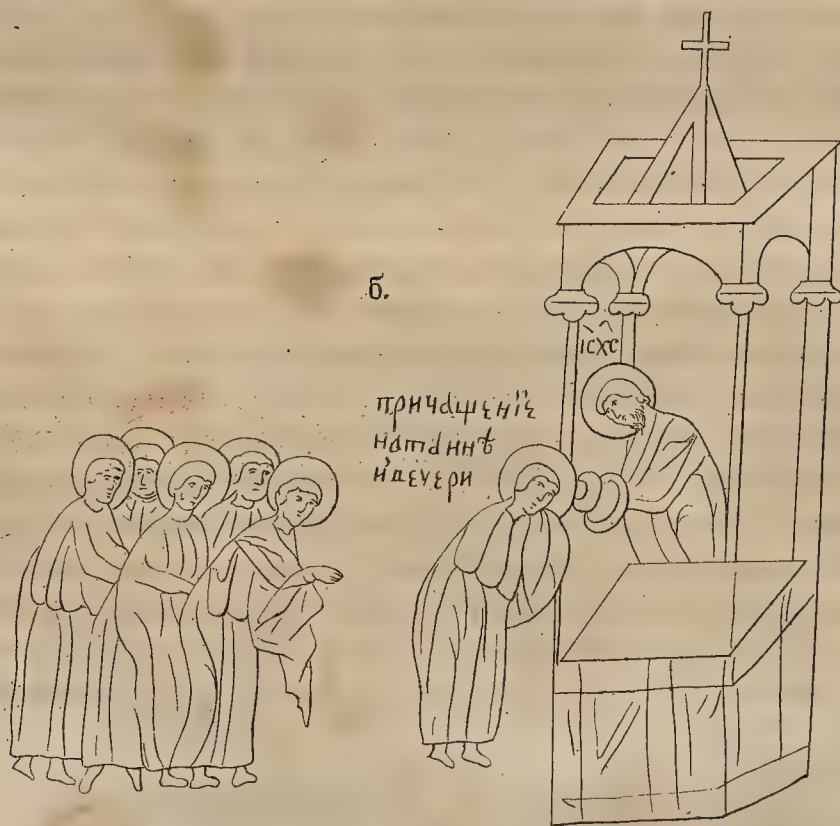 б.
іс҃ х҃с
причащенїе
натаинѣ
ивечери